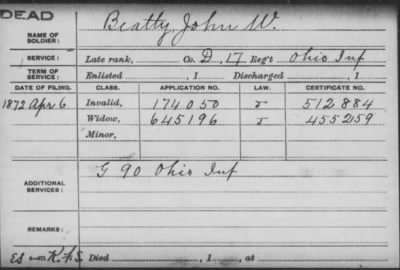 DEAD
NAME OF SOLDIER: Beatty, John W.
SERVICE: Late rank, Co. D, 17 Reg't Ohio Inf
TERM OF SERVICE: Enlisted , 1 Discharged , 1
DATE OF FILING. CLASS. APPLICATION NO. LAW. CERTIFICATE NO.
1872 Apr 6 Invalid, 174050 512884
Widow, 645196 455259
Minor,
ADDITIONAL SERVICES: G 90 Ohio Inf
REMARKS:
Died , 1 , at